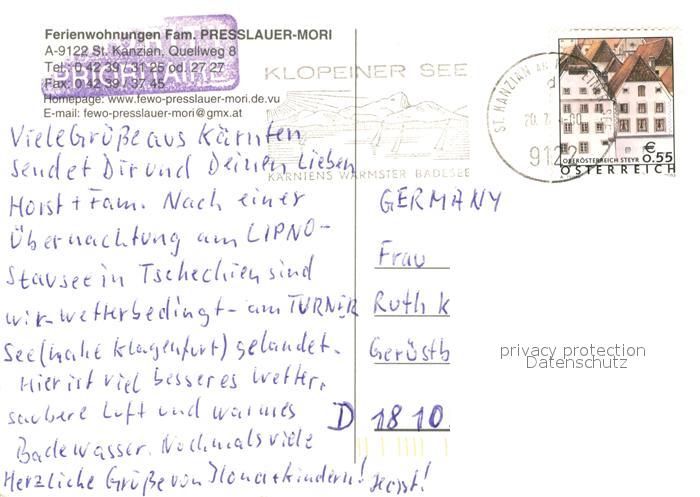 Ferienwohnungen Fam. PRESSLAUER-MORI
A-9122 St. Kanzian, Quellweg 8
Tel.: 0 42 39 / 31 25 od. 27 27
Fax: 0 42 39 / 37 45
Homepage: www.fewo-presslauer-mori.de.vu
E-mail: fewo-presslauer-mori@gmx.at
KLOPEINER SEE
KÄRNTENS WÄRMSTER BADESEE
ST. KANZIAN AM
20. 7.
912
€
0.55
OBERÖSTERREICH STEYR
ÖSTERREICH
Viele Grüße aus Kärnten
sendet Dir und Deinen Lieben
Horst + Fam. Nach einer
Übernachtung am LIPNO-
Stausee in Tschechien sind
wir wetterbedingt - am TURNER
See (nahe Klagenfurt) gelandet.
Hier ist viel besseres Wetter,
saubere Luft und warmes
Badewasser. Nochmals viele
Herzliche Grüße von Ilona + Kindern! Horst!
GERMANY
Frau
Ruth K
Gerüstb
D 18 10
privacy protection
Datenschutz